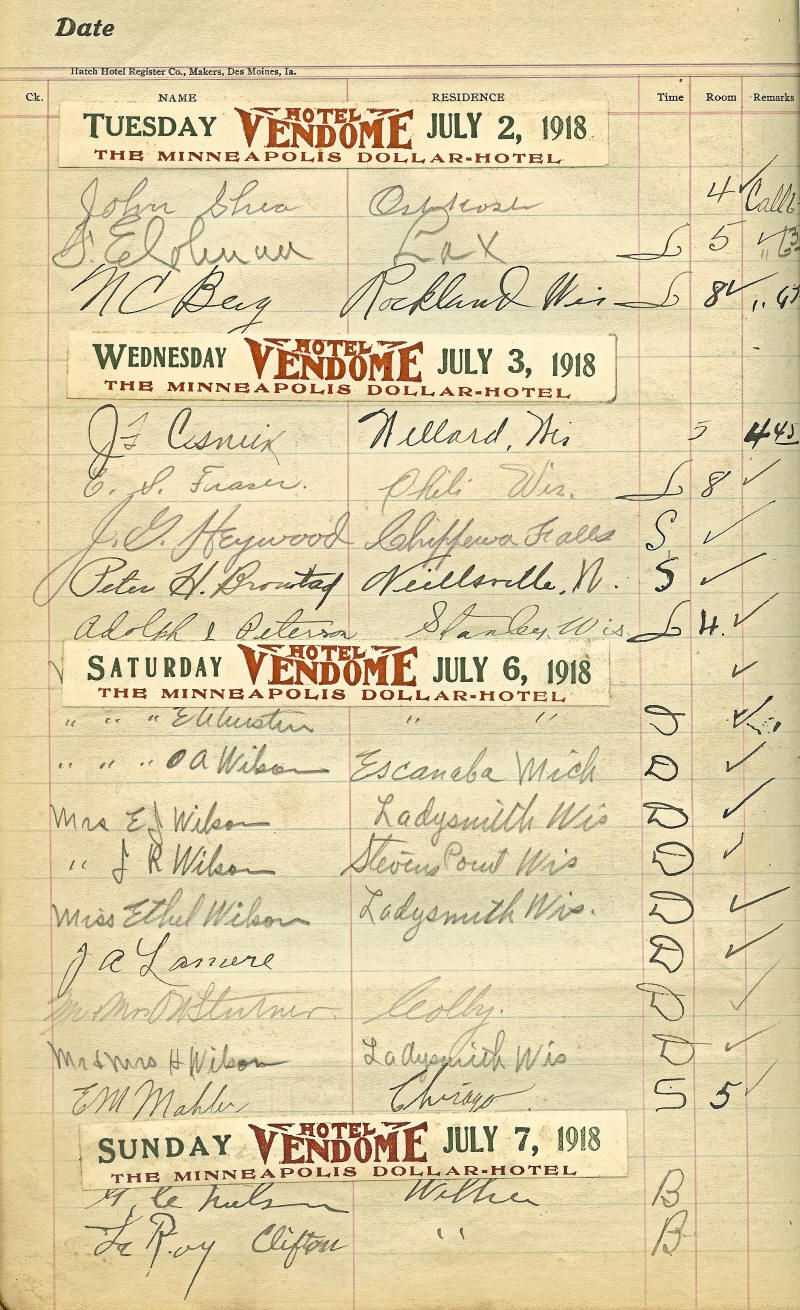 Date
Hatch Hotel Register Co., Makers, Des Moines, Ia.
Ck. NAME RESIDENCE Time Room Remarks
TUESDAY HOTEL VENDOME JULY 2, 1918
THE MINNEAPOLIS DOLLAR-HOTEL
John Shea Oshkosh 4 ✓ Call
Lax L 5 ✓
N C Berg Rockland Wis L 8 ✓
WEDNESDAY HOTEL VENDOME JULY 3, 1918
THE MINNEAPOLIS DOLLAR-HOTEL
J F Willard, Wis 5 445
E. S. Fraser. Chili Wis. L 8 ✓
J. G. Heywood Chippewa Falls S ✓
Peter H. Bronstad Neillsville, W. S ✓
Adolph Peterson Stanley, Wis. L 4. ✓
SATURDAY HOTEL VENDOME JULY 6, 1918
THE MINNEAPOLIS DOLLAR-HOTEL
" " " " " D ✓
" " " O A Wilson Escanaba Mich D ✓
Mrs E J Wilson Ladysmith Wis D ✓
" J R Wilson Stevens Point Wis D ✓
Miss Ethel Wilson Ladysmith Wis. D ✓
J A Lamere D ✓
Colby. D ✓
Mr & Mrs H Wilson Ladysmith Wis D ✓
E M Mahler Chicago S 5 ✓
SUNDAY HOTEL VENDOME JULY 7, 1918
THE MINNEAPOLIS DOLLAR-HOTEL
Nelson Withee B
Le Roy Clifton " B